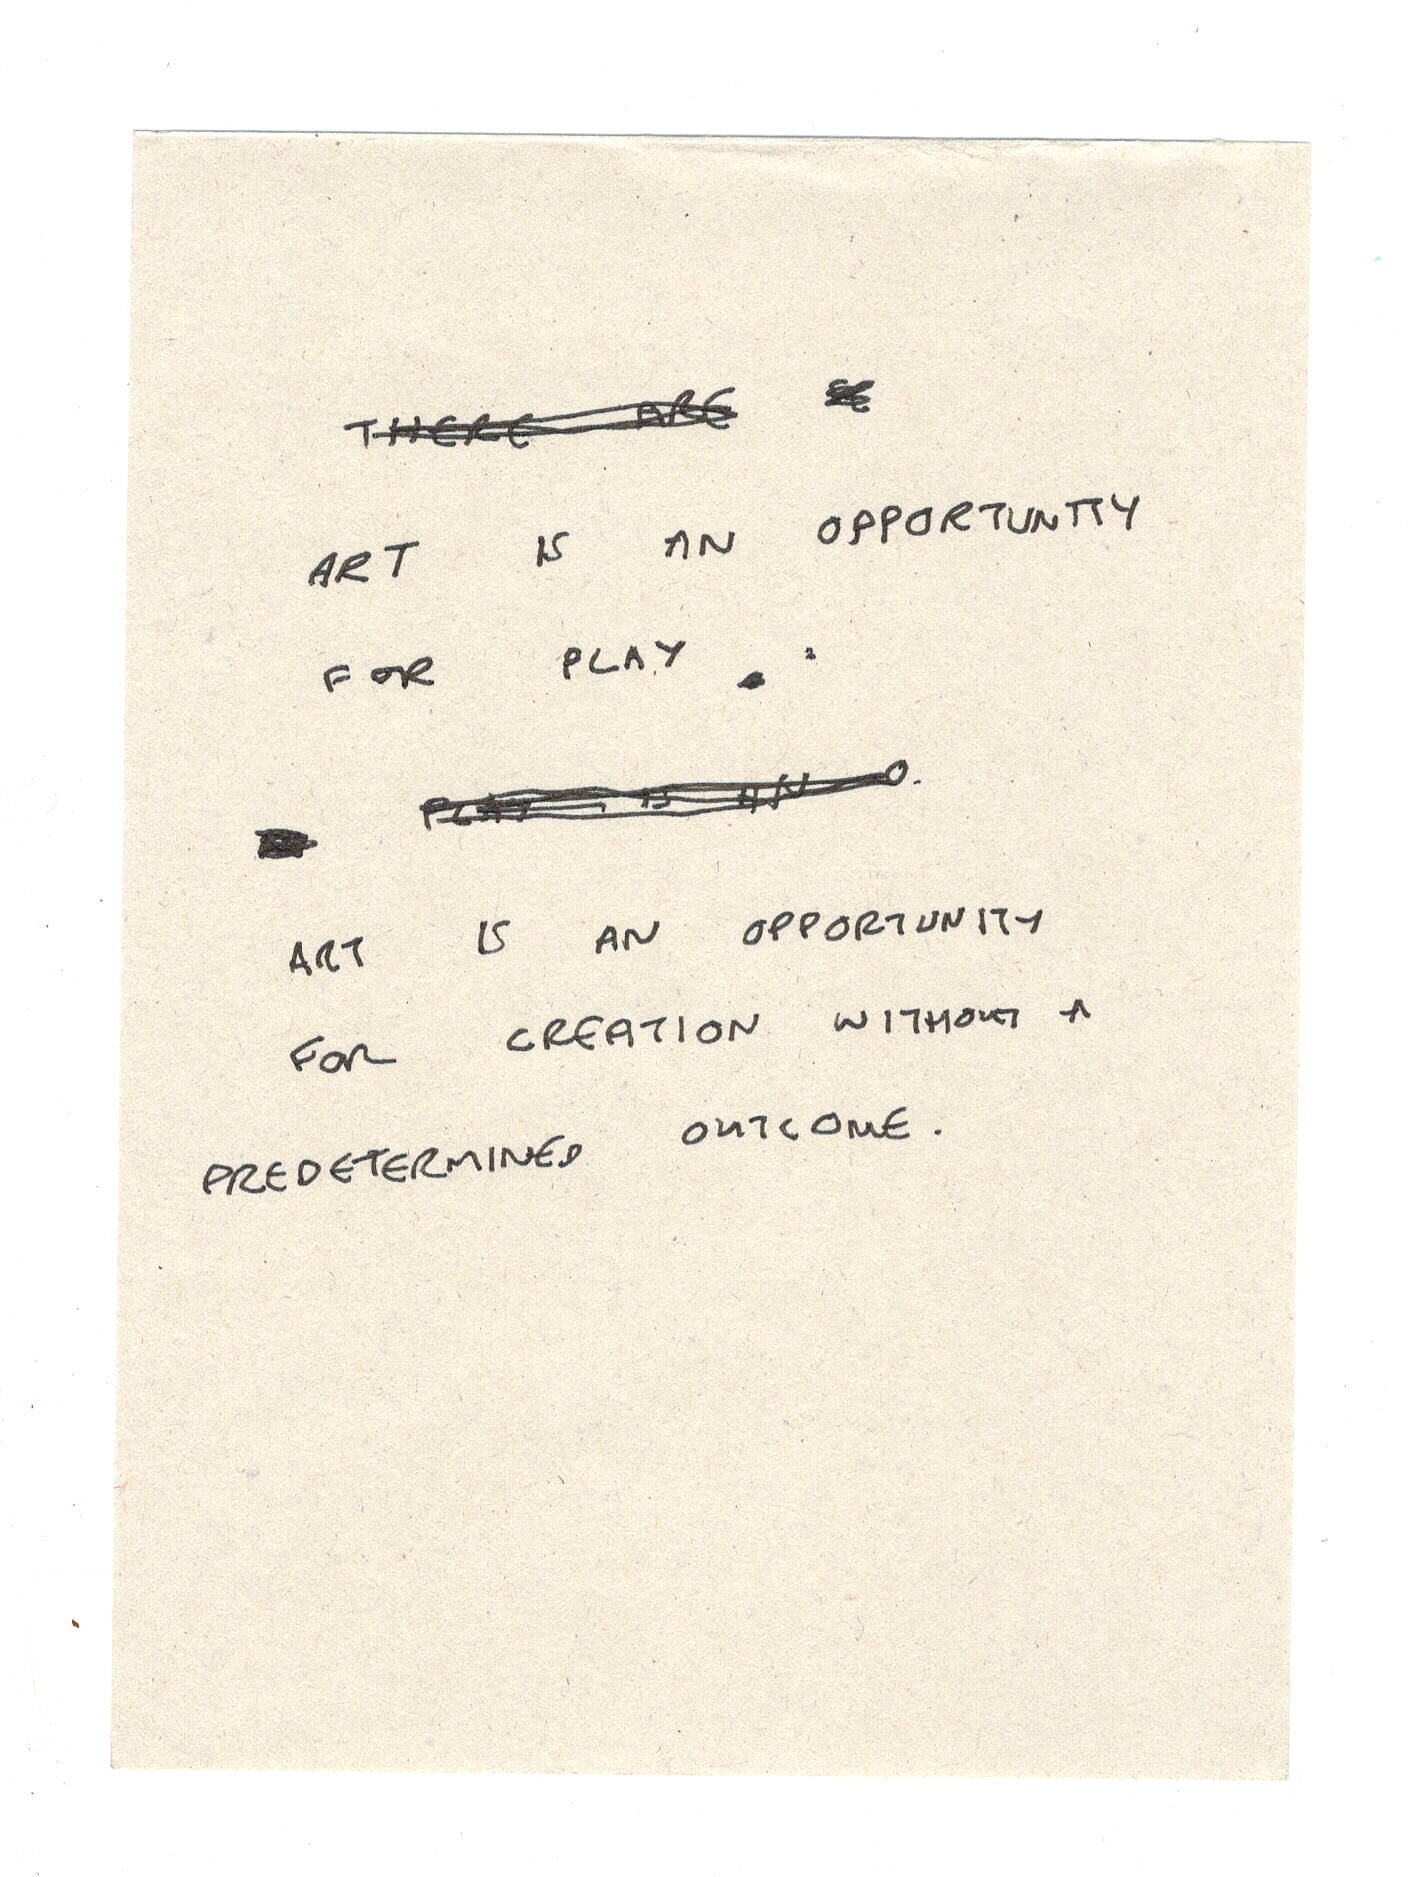 THERE ARE
ART IS AN OPPORTUNTTY
FOR PLAY.
PLAY IS AN O.
ART IS AN OPPORTUNITY
FOR CREATION WITHOUT A
PREDETERMINED OUTCOME.